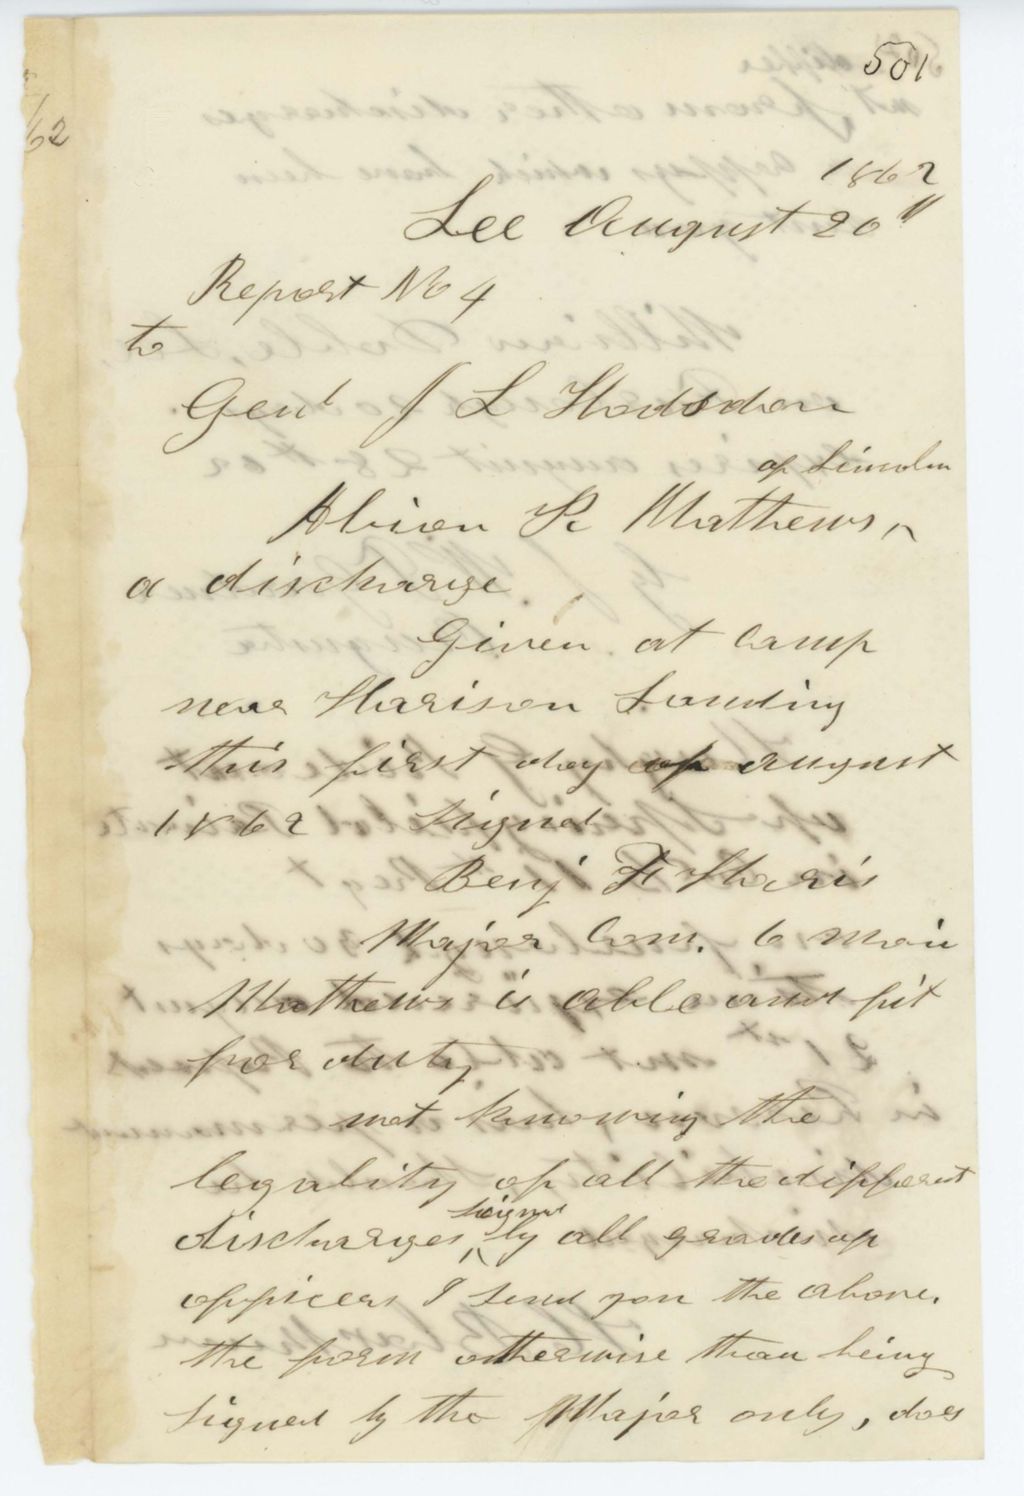 501
1862
Lee August 20"
Report No 4
to
Genl J L Hodsdon
of Lincoln
Albion P. Mathews, ^
a discharge.
Given at Camp
near Harison Landing
this first day of august
1862 Signed
Benj F Haris
Major Com. 6 Main
Mathews is able and fit
for duty
not knowing the
legality of all the different
signed
discharges ^ by all grades of
officers I send you the above.
the form otherwise than being
signed by the Major only, does
62